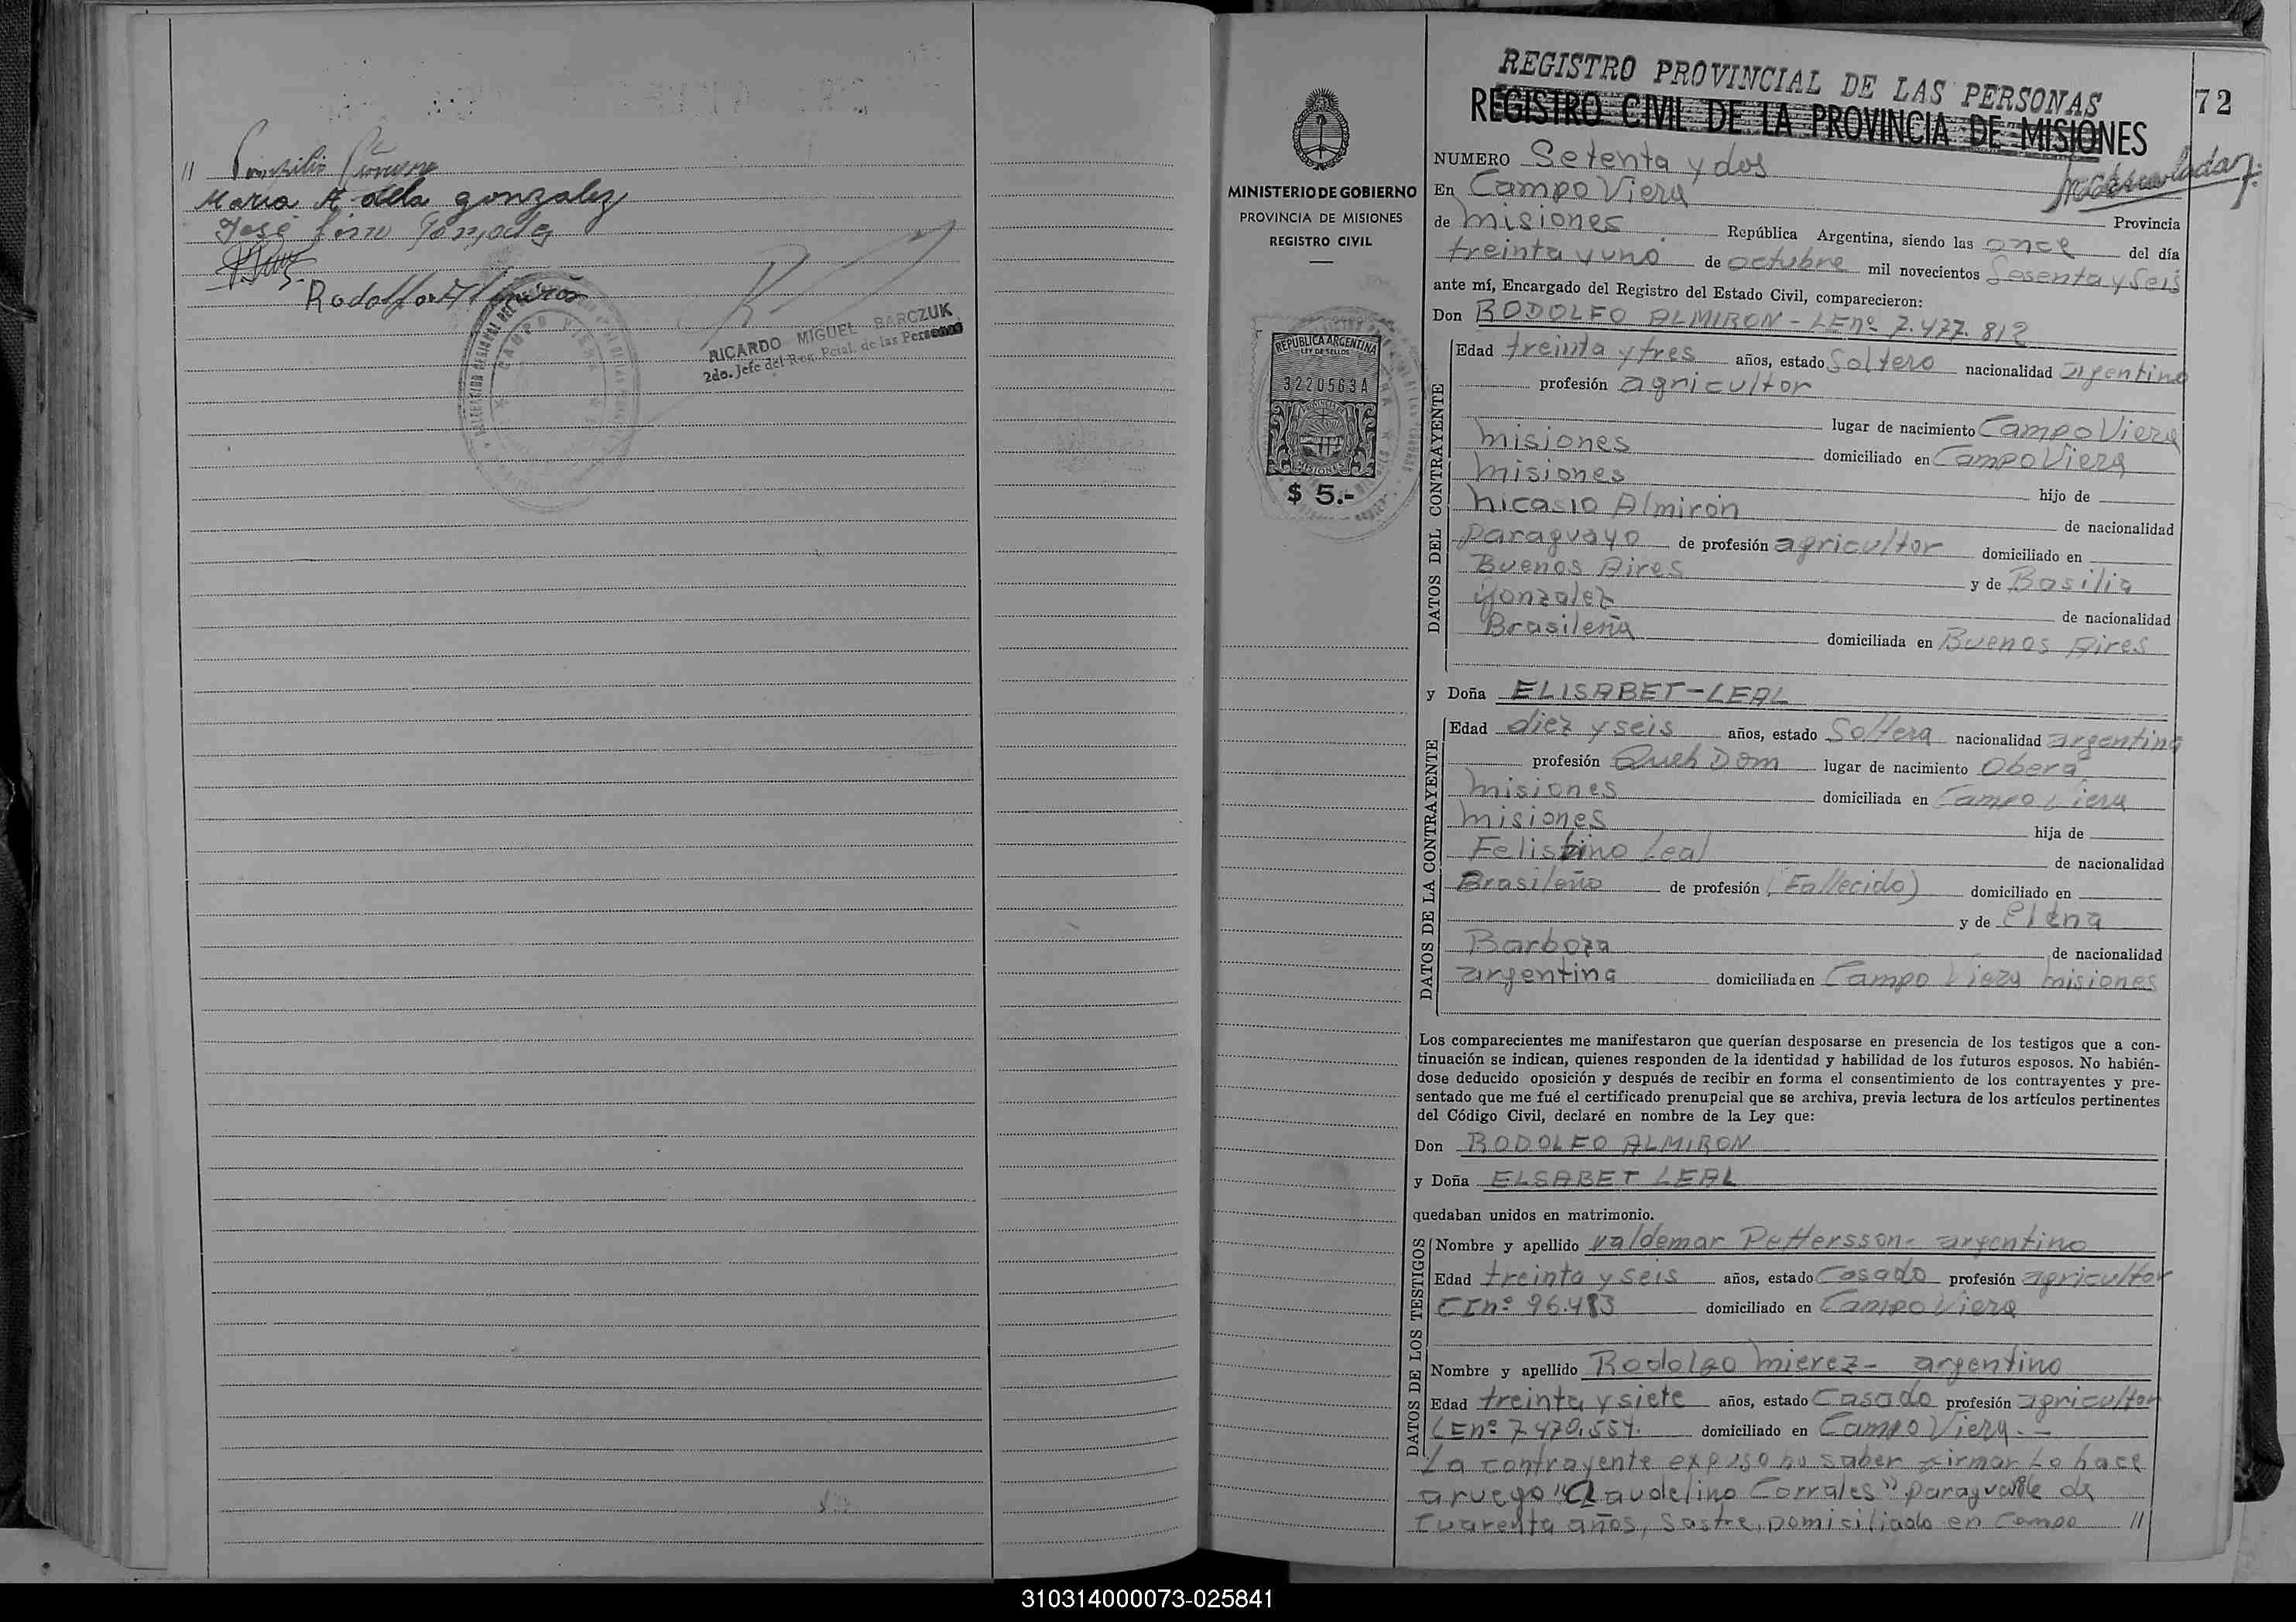 María A della gonzalez
José Lino González
Rodolfo Almirón
CAMPO VIERA
RICARDO MIGUEL BARCZUK
2do. Jefe del Reg. Pcial. de las Personas
MINISTERIO DE GOBIERNO
PROVINCIA DE MISIONES
REGISTRO CIVIL
REPUBLICA ARGENTINA
LEY DE SELLOS
3220563A
MISIONES
$ 5.-
REGISTRO PROVINCIAL DE LAS PERSONAS
72
REGISTRO CIVIL DE LA PROVINCIA DE MISIONES
NUMERO Setenta y dos
En Campo Viera
Provincia
de Misiones República Argentina, siendo las once del día
treinta y uno de octubre mil novecientos Sesenta y Seis
ante mí, Encargado del Registro del Estado Civil, comparecieron:
Don RODOLFO ALMIRON - LEnº 7.477.812
DATOS DEL CONTRAYENTE
Edad treinta y tres años, estado Soltero nacionalidad argentino
profesión agricultor
lugar de nacimiento Campo Viera
Misiones domiciliado en Campo Viera
Misiones hijo de
Nicasio Almirón de nacionalidad
paraguayo de profesión agricultor domiciliado en
Buenos Aires y de Basilia
Gonzalez de nacionalidad
Brasileña domiciliada en Buenos Aires
y Doña ELISABET-LEAL
DATOS DE LA CONTRAYENTE
Edad diez y seis años, estado Soltera nacionalidad argentina
profesión Queh Dom lugar de nacimiento Oberá
Misiones domiciliada en Campo Viera
Misiones hija de
Felisbino Leal de nacionalidad
Brasileño de profesión (Fallecido) domiciliado en
y de Elena
Barboza de nacionalidad
argentina domiciliada en Campo Viera Misiones
Los comparecientes me manifestaron que querían desposarse en presencia de los testigos que a con-
tinuación se indican, quienes responden de la identidad y habilidad de los futuros esposos. No habién-
dose deducido oposición y después de recibir en forma el consentimiento de los contrayentes y pre-
sentado que me fué el certificado prenupcial que se archiva, previa lectura de los artículos pertinentes
del Código Civil, declaré en nombre de la Ley que:
Don RODOLFO ALMIRON
y Doña ELSABET LEAL
quedaban unidos en matrimonio.
DATOS DE LOS TESTIGOS
Nombre y apellido Valdemar Pettersson- argentino
Edad treinta y seis años, estado Casado profesión agricultor
CInº 96.483 domiciliado en Campo Viera
Nombre y apellido Rodolgo Mierez - argentino
Edad treinta y siete años, estado Casado profesión agricultor
LEnº 7.470.554. domiciliado en Campo Viera.-
La contrayente expuso no saber firmar Lo hace
aruego "Claudelino Corrales" paraguayo de
Cuarenta años, Sastre, Domisiliado en Campo //
310314000073-025841